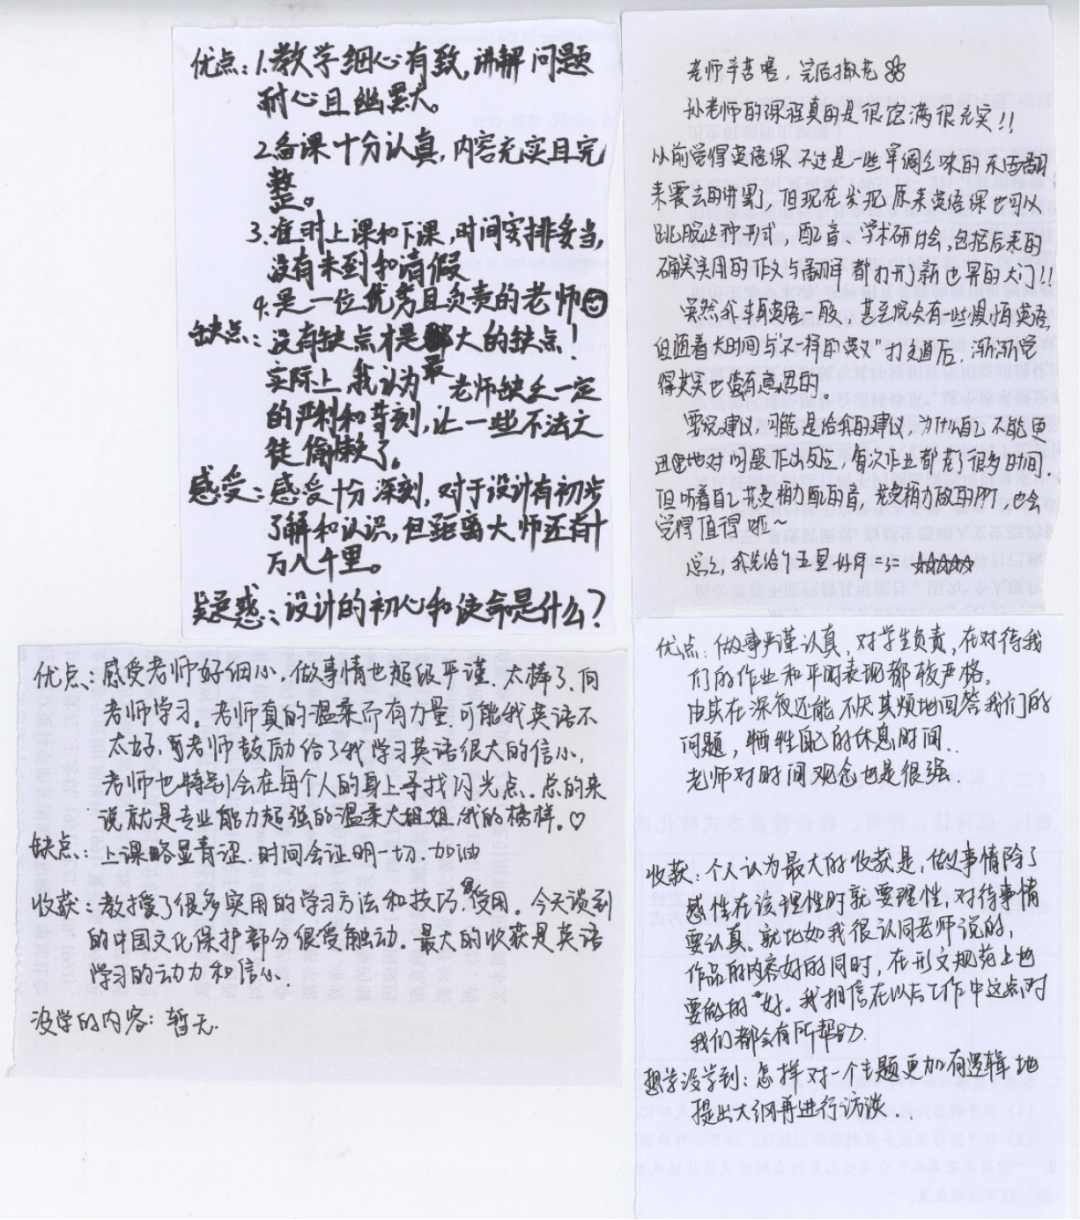 优点：1.教学细心有致，讲解问题
耐心且幽默。
2.备课十分认真，内容充实且完
整。
3.准时上课和下课，时间安排妥当，
没有未到和请假
4.是一位优秀且负责的老师
缺点：没有缺点才是最大的缺点！
实际上，我认为老师缺乏一定
的严利和苛刻，让一些不法之
徒偷懒了。
感受：感受十分深刻，对于设计有初步
了解和认识，但距离大师还有十
万八千里。
疑惑：设计的初心和使命是什么？
老师辛苦喽，完结撒花
孙老师的课程真的是很饱满很充实！！
以前觉得英语课不过是一些单调乏味的东西翻
来覆去的讲罢了，但现在发现原来英语课也可以
跳脱这种形式，配音、学术研讨会，包括后来的
确实实用的作文与翻译都打开了新世界的大门！！
虽然我本身英语一般，甚至说会有一些惧怕英语，
但随着大时间与"不一样的英文"打交道后，渐渐觉
得其实也蛮有意思的。
要说建议，可能是给我的建议，为什么自己不能更
迅速地对问题作出反应，每次作业都花了很多时间，
但听着自己花费精力配的音，花费精力做的PPT，也会
觉得值得啦~
总之，我先给个五星好评=:= ☆☆☆☆☆
优点：感受老师好细心，做事情也超级严谨，太棒了，向
老师学习。老师真的温柔而有力量，可能我英语不
太好，可老师鼓励给了我学习英语很大的信心，
老师也特别会在每个人的身上寻找闪光点。总的来
说就是专业能力超强的温柔大姐姐，我的榜样。♡
缺点：上课略显青涩，时间会证明一切，加油
收获：教授了很多实用的学习方法和技巧，很受用。今天谈到
的中国文化保护部分很受触动。最大的收获是英语
学习的动力和信心。
没学的内容：暂无.
优点：做事严谨认真，对学生负责，在对待我
们的作业和平时表现都较严格。
由其在深夜还能不厌其烦地回答我们的
问题，牺牲自己的休息时间..
老师对时间观念也是很强.
收获：个人认为最大的收获是，做事情除了
感性在该理性时就要理性，对待事情
要认真。就比如我很认同老师说的，
作品的内容好的同时，在形文规范上也
要做的好。我相信在以后工作中这点对
我们都会有所帮助.
想学没学到：怎样对一个主题更加有逻辑地
提出大纲再进行访谈...